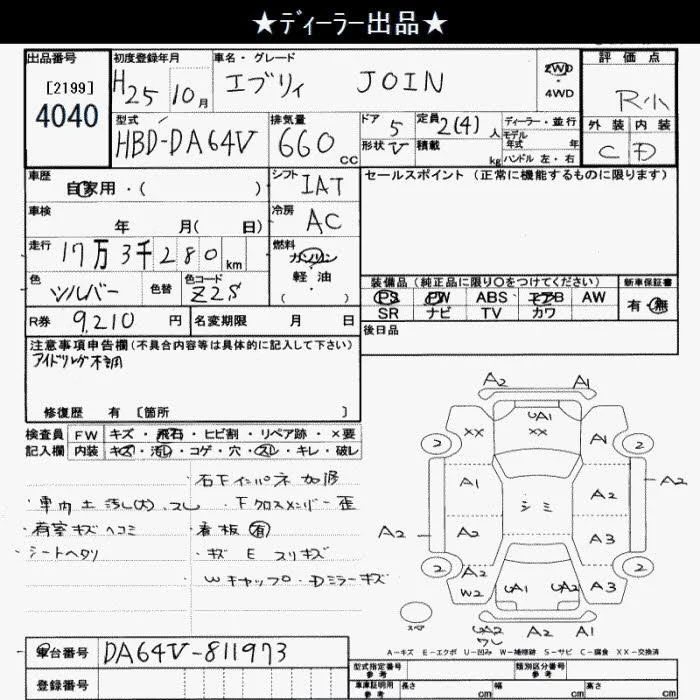 ★ディーラー出品★
出品番号
[2199]
4040
初度登録年月
H25 10月
車名・グレード
エブリィ JOIN
2WD
・
4WD
評価点
R小
外装 内装
C D
型式
HBD-DA64V
排気量
660
CC
ドア
5
形状 V
定員
2(4) 人
積載
kg
ディーラー・並行
モデル
年式 年
ハンドル 左・右
車歴
自家用・( )
シフト
IAT
セールスポイント (正常に機能するものに限ります)
車検
年 月( 日)
冷房
AC
走行
17万3千280km
燃料
ガソリン
・
軽・油
( )
色
シルバー
色替
色コード
Z2S
装備品 (純正品に限り○をつけてください)
新車保証書
PS PW ABS エアB AW
SR ナビ TV カワ
有・無
R券 9,210 円
名変期限 月 日
後日品
注意事項申告欄(不具合内容等は具体的に記入して下さい)
アイドリング不調
修復歴 有 〔箇所 〕
検査員
記入欄
FW キズ・飛石・ヒビ割・リペア跡・×要
内装 キズ・汚れ・コゲ・穴・スレ・キレ・破レ
石下インパネ加修
・車内土汚レ(大)、スレ ・下クロスメンバー歪
・荷室キズヘコミ ・看板有
・シートヘタリ ・キズ E スリキズ
Wキャップ・Dミラーキズ
A2 A1
UA1
XX XX
2 A1 2
A1 シミ A2 A2
A2 A2 A3
2 A2 2
W2 UA1 UA2 A3
スペア
UA2 A2 A1
ワレ
A-キズ E-エクボ U-凹み W-補修跡 S-サビ C-腐食 XX-交換済
車台番号 DA64V-811973
登録番号
型式指定番号
参考
類別区分番号
参考
車庫証明用
参考
長さ cm 幅 cm 高さ cm